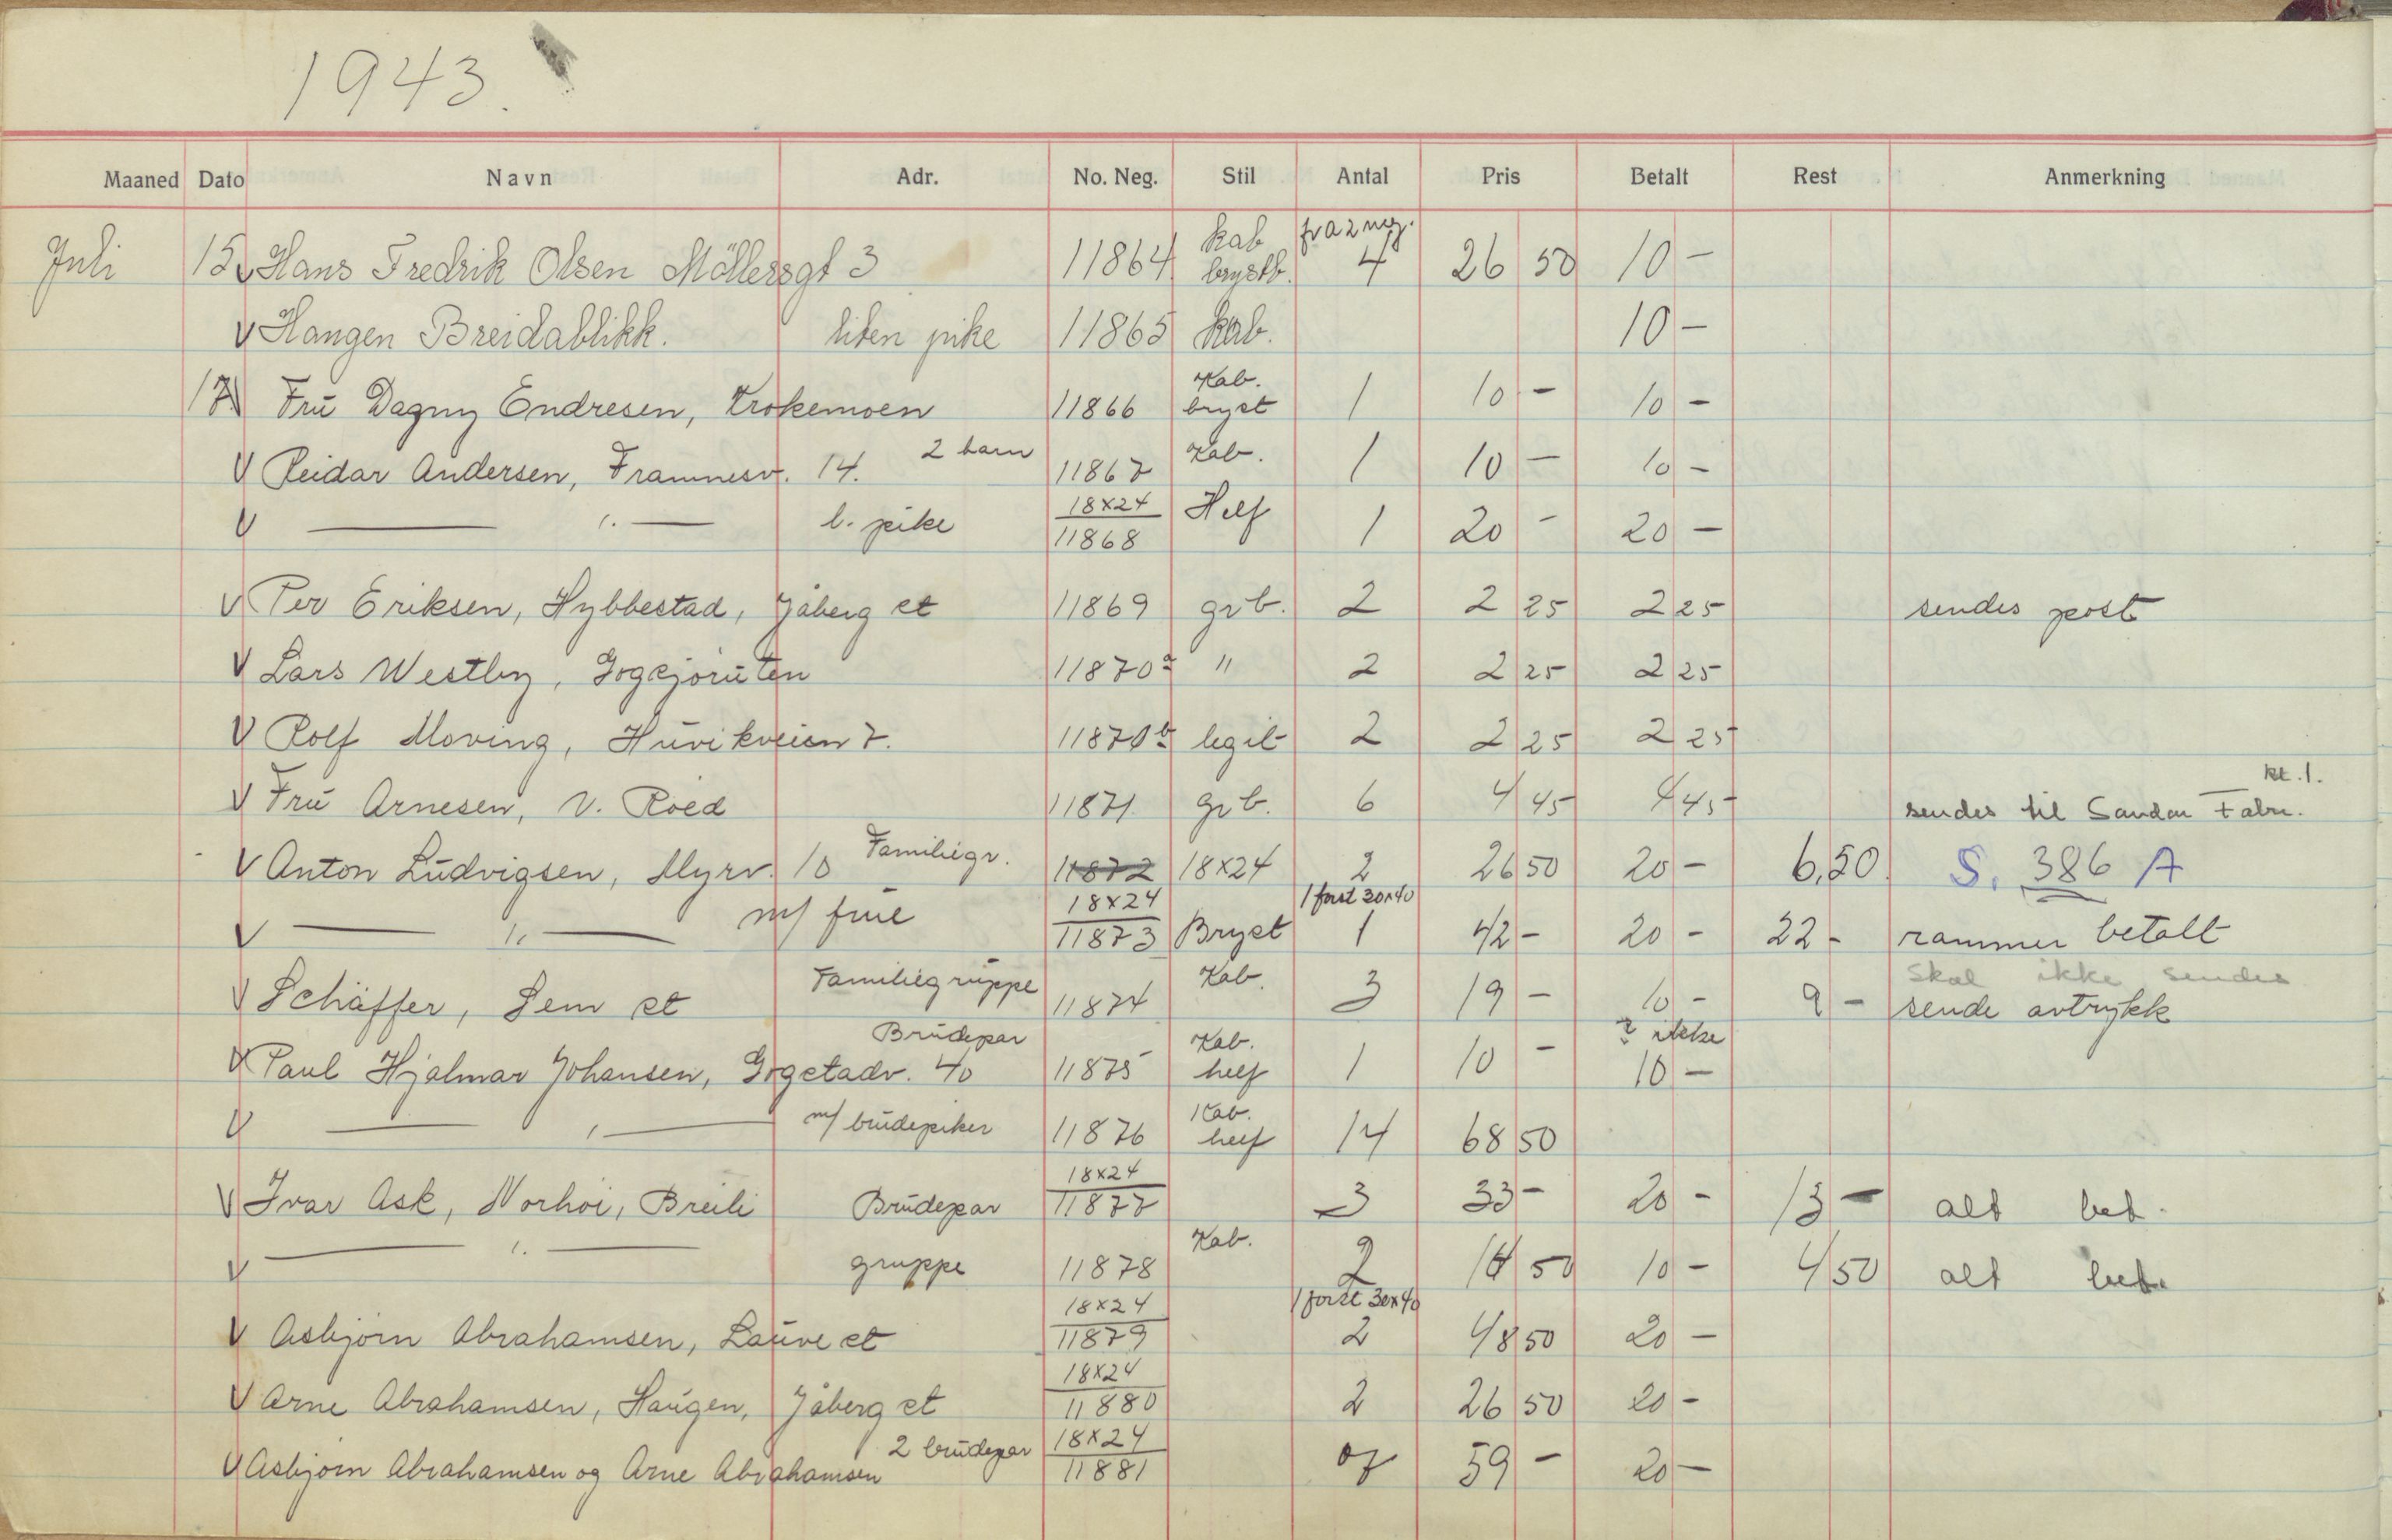 1943.
Maaned Dato Navn Adr. No. Neg. Stil Antal Pris Betalt Rest Anmerkning
Juli 15 V Hans Fredrik Olsen Möllersgt 3 11864 kab brystb. fra 2 neg. 4 26 50 10 -
V Haugen Breidablikk. liten pike 11865 kab. 10 -
17 V Frū Dagny Endresen, Krokemoen 11866 Kab. bryst 1 10 - 10 -
V Reidar Andersen, Framnesv. 14. 2 barn 11867 Kab. 1 10 - 10 -
V — " — l. pike 18x24 11868 Helf 1 20 - 20 -
V Per Eriksen, Hybbestad, Jåberg st 11869 grb. 2 2 25 2 25 sendes post
V Lars Westby, Gogsjorūten 11870a " 2 2 25 2 25
V Rolf Moving, Hūvikveien 7. 11870b legit 2 2 25 2 25
V Frū Arnesen, V. Röed 11871 grb. 6 4 45 4 45 sendes til Sandar Fabr. kt. 1.
V Anton Lūdvigsen, Myrv. 10 Familiegr. 11872 18x24 2 26 50 20 - 6,50 S. 386 A
V — " — m/ frūe 18x24 11873 Bryst 1 forst 30x40 1 42 - 20 - 22 - rammer betalt
V Schäffer, Sem st Familiegrūppe 11874 Kab. 3 19 - 10 - 9 - Skal ikke sendes sende avtrykk
V Paul Hjalmar Johansen, Gogstadv. 40 Brūdepar 11875 Kab. helf 1 10 - ? ikke 10 -
V — " — m/ brūdepiker 11876 Kab. helf 14 68 50
V Ivar Ask, Norhöi, Breili Brūdepar 18x24 11877 3 33 - 20 - 13 - alt bet.
V — " — gruppe 11878 Kab. 2 14 50 10 - 4 50 alt bet.
V Asbjörn Abrahamsen, Laūve st 18x24 11879 1 forst 30x40 2 48 50 20 -
V Arne Abrahamsen, Haūgen, Jåberg st 18x24 11880 2 26 50 20 -
V Asbjörn Abrahamsen og Arne Abrahamsen 2 brūdepar 18x24 11881 7 59 - 20 -